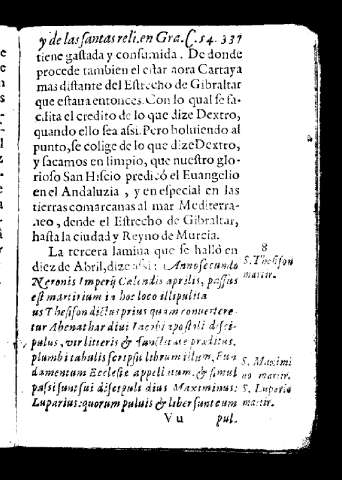 y de las santas reli. en Gra. C. 54. 337
tiene gastada y consumida. De donde
procede tambien el estar aora Cartaya
mas distante del Estrecho de Gibraltar
que estaua entonces. Con lo qual se fa-
cilita el credito de lo que dize Dextro,
quando ello sea assi. Pero boluiendo al
punto, se colige de lo que dize Dextro,
y sacamos en limpio, que nuestro glo-
rioso San Hiscio predicó el Euangelio
en el Andaluzia, y en especial en las
tierras comarcanas al mar Mediterra-
neo, dende el Estrecho de Gibraltar,
hasta la ciudad y Reyno de Murcia.
La tercera lamina que se halló en
diez de Abril, dize assi: Anno secundo
Neronis Imperij Calendis aprilis, passus
est martirium in hoc loco illipulita
us Thesifon dictus prius quam converteretur
tur Abenathar diui Iacobi apostoli disci-
pulus, vir litteris & sanctitate præditus.
plumbi tabulis scripsit librum illum, Fun
damentum Ecclesiæ appellatum. & simul
passi sunt sui discipuli diuus Maximinus:
Luparius: quorum puluis & liber sunt cum
Vu pul.
8
S. Thesifon
martir.
S. Maximi
no martir.
S. Lupario
martir.